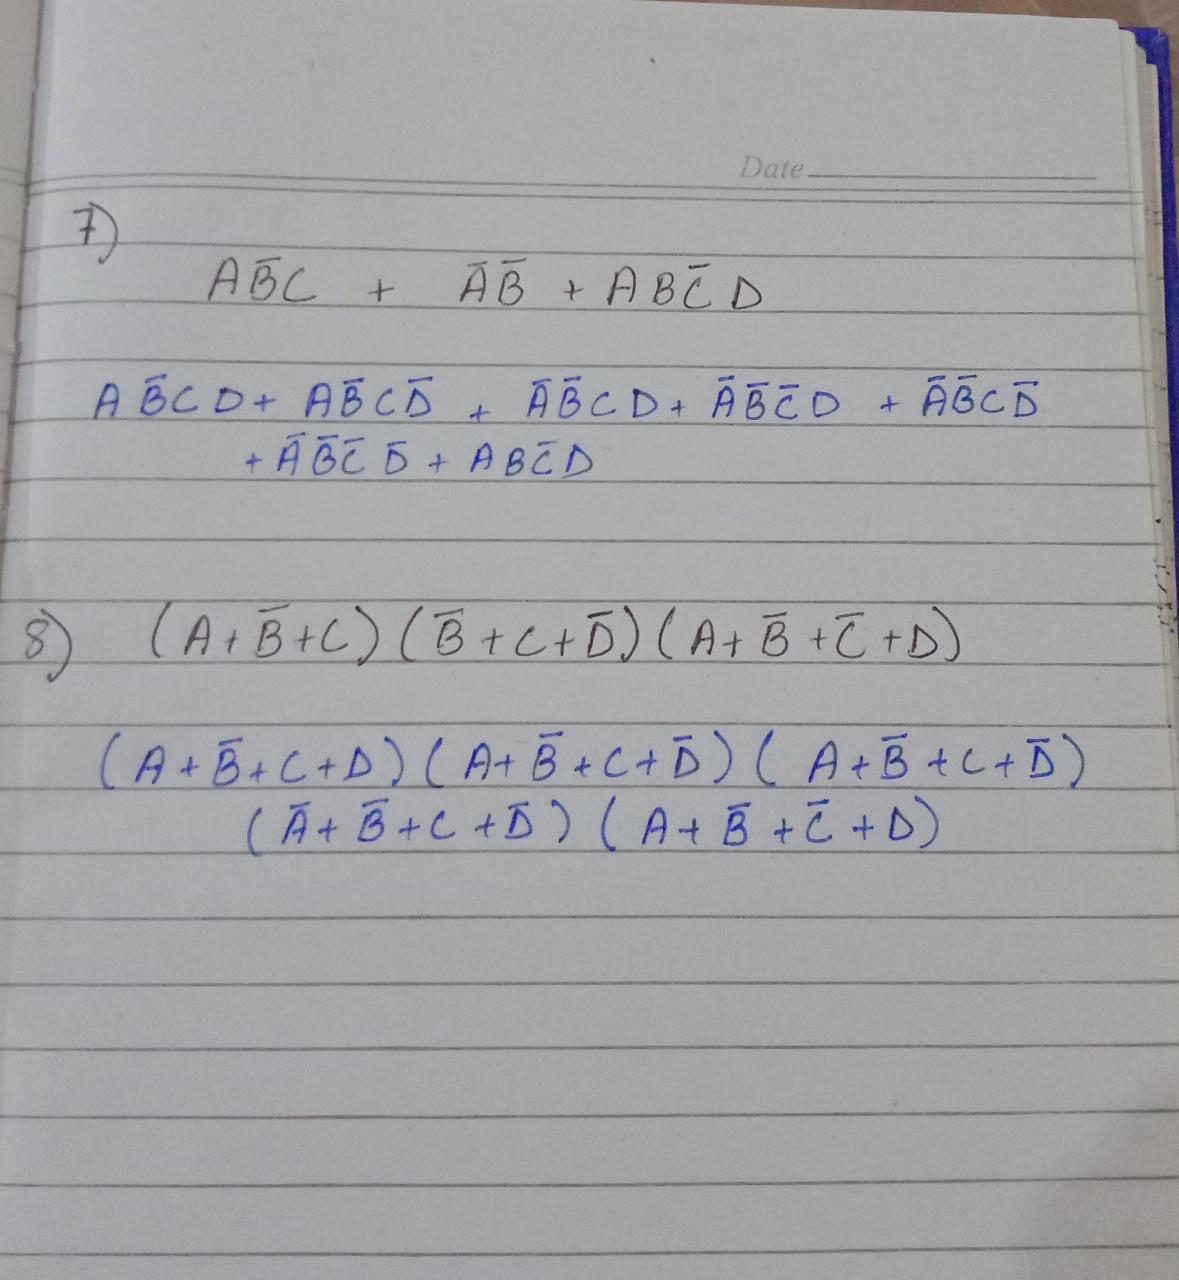 Date
7)
AB̅C + A̅B̅ + ABC̅D
AB̅CD + AB̅CD̅ + A̅B̅CD + A̅B̅C̅D + A̅B̅CD̅
+ A̅B̅C̅D̅ + ABC̅D
8) (A+B̅+C)(B̅+C+D̅)(A+B̅+C̅+D)
(A+B̅+C+D)(A+B̅+C+D̅)(A+B̅+C+D̅)
(A̅+B̅+C+D̅)(A+B̅+C̅+D)